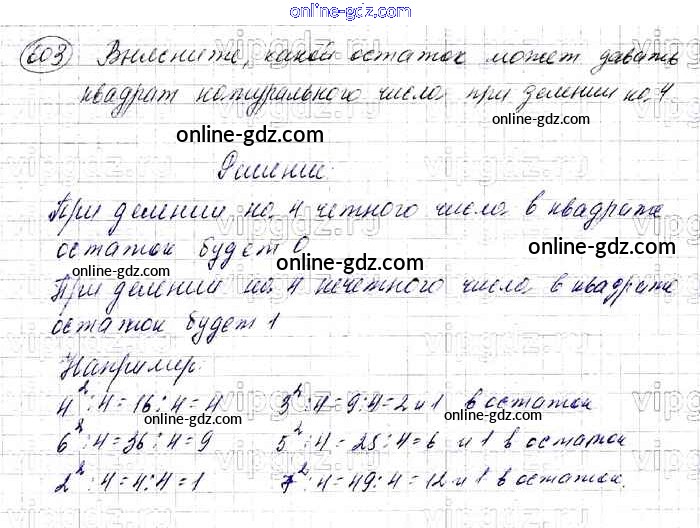 online-gdz.com
603 Выясните, какой остаток может давать
квадрат натурального числа при делении на 4
online-gdz.com online-gdz.com
Решение:
При делении на 4 четного числа в квадрате
остаток будет 0
online-gdz.com
online-gdz.com online-gdz.com
При делении на 4 нечетного числа в квадрате
остаток будет 1
online-gdz.com
Например:
4²:4=16:4=4 3²:4=9:4=2 и 1 в остатке
online-gdz.com online-gdz.com
6²:4=36:4=9 5²:4=25:4=6 и 1 в остатке
2²:4=4:4=1 7²:4=49:4=12 и 1 в остатке.
online-gdz.com
vipgdz.ru